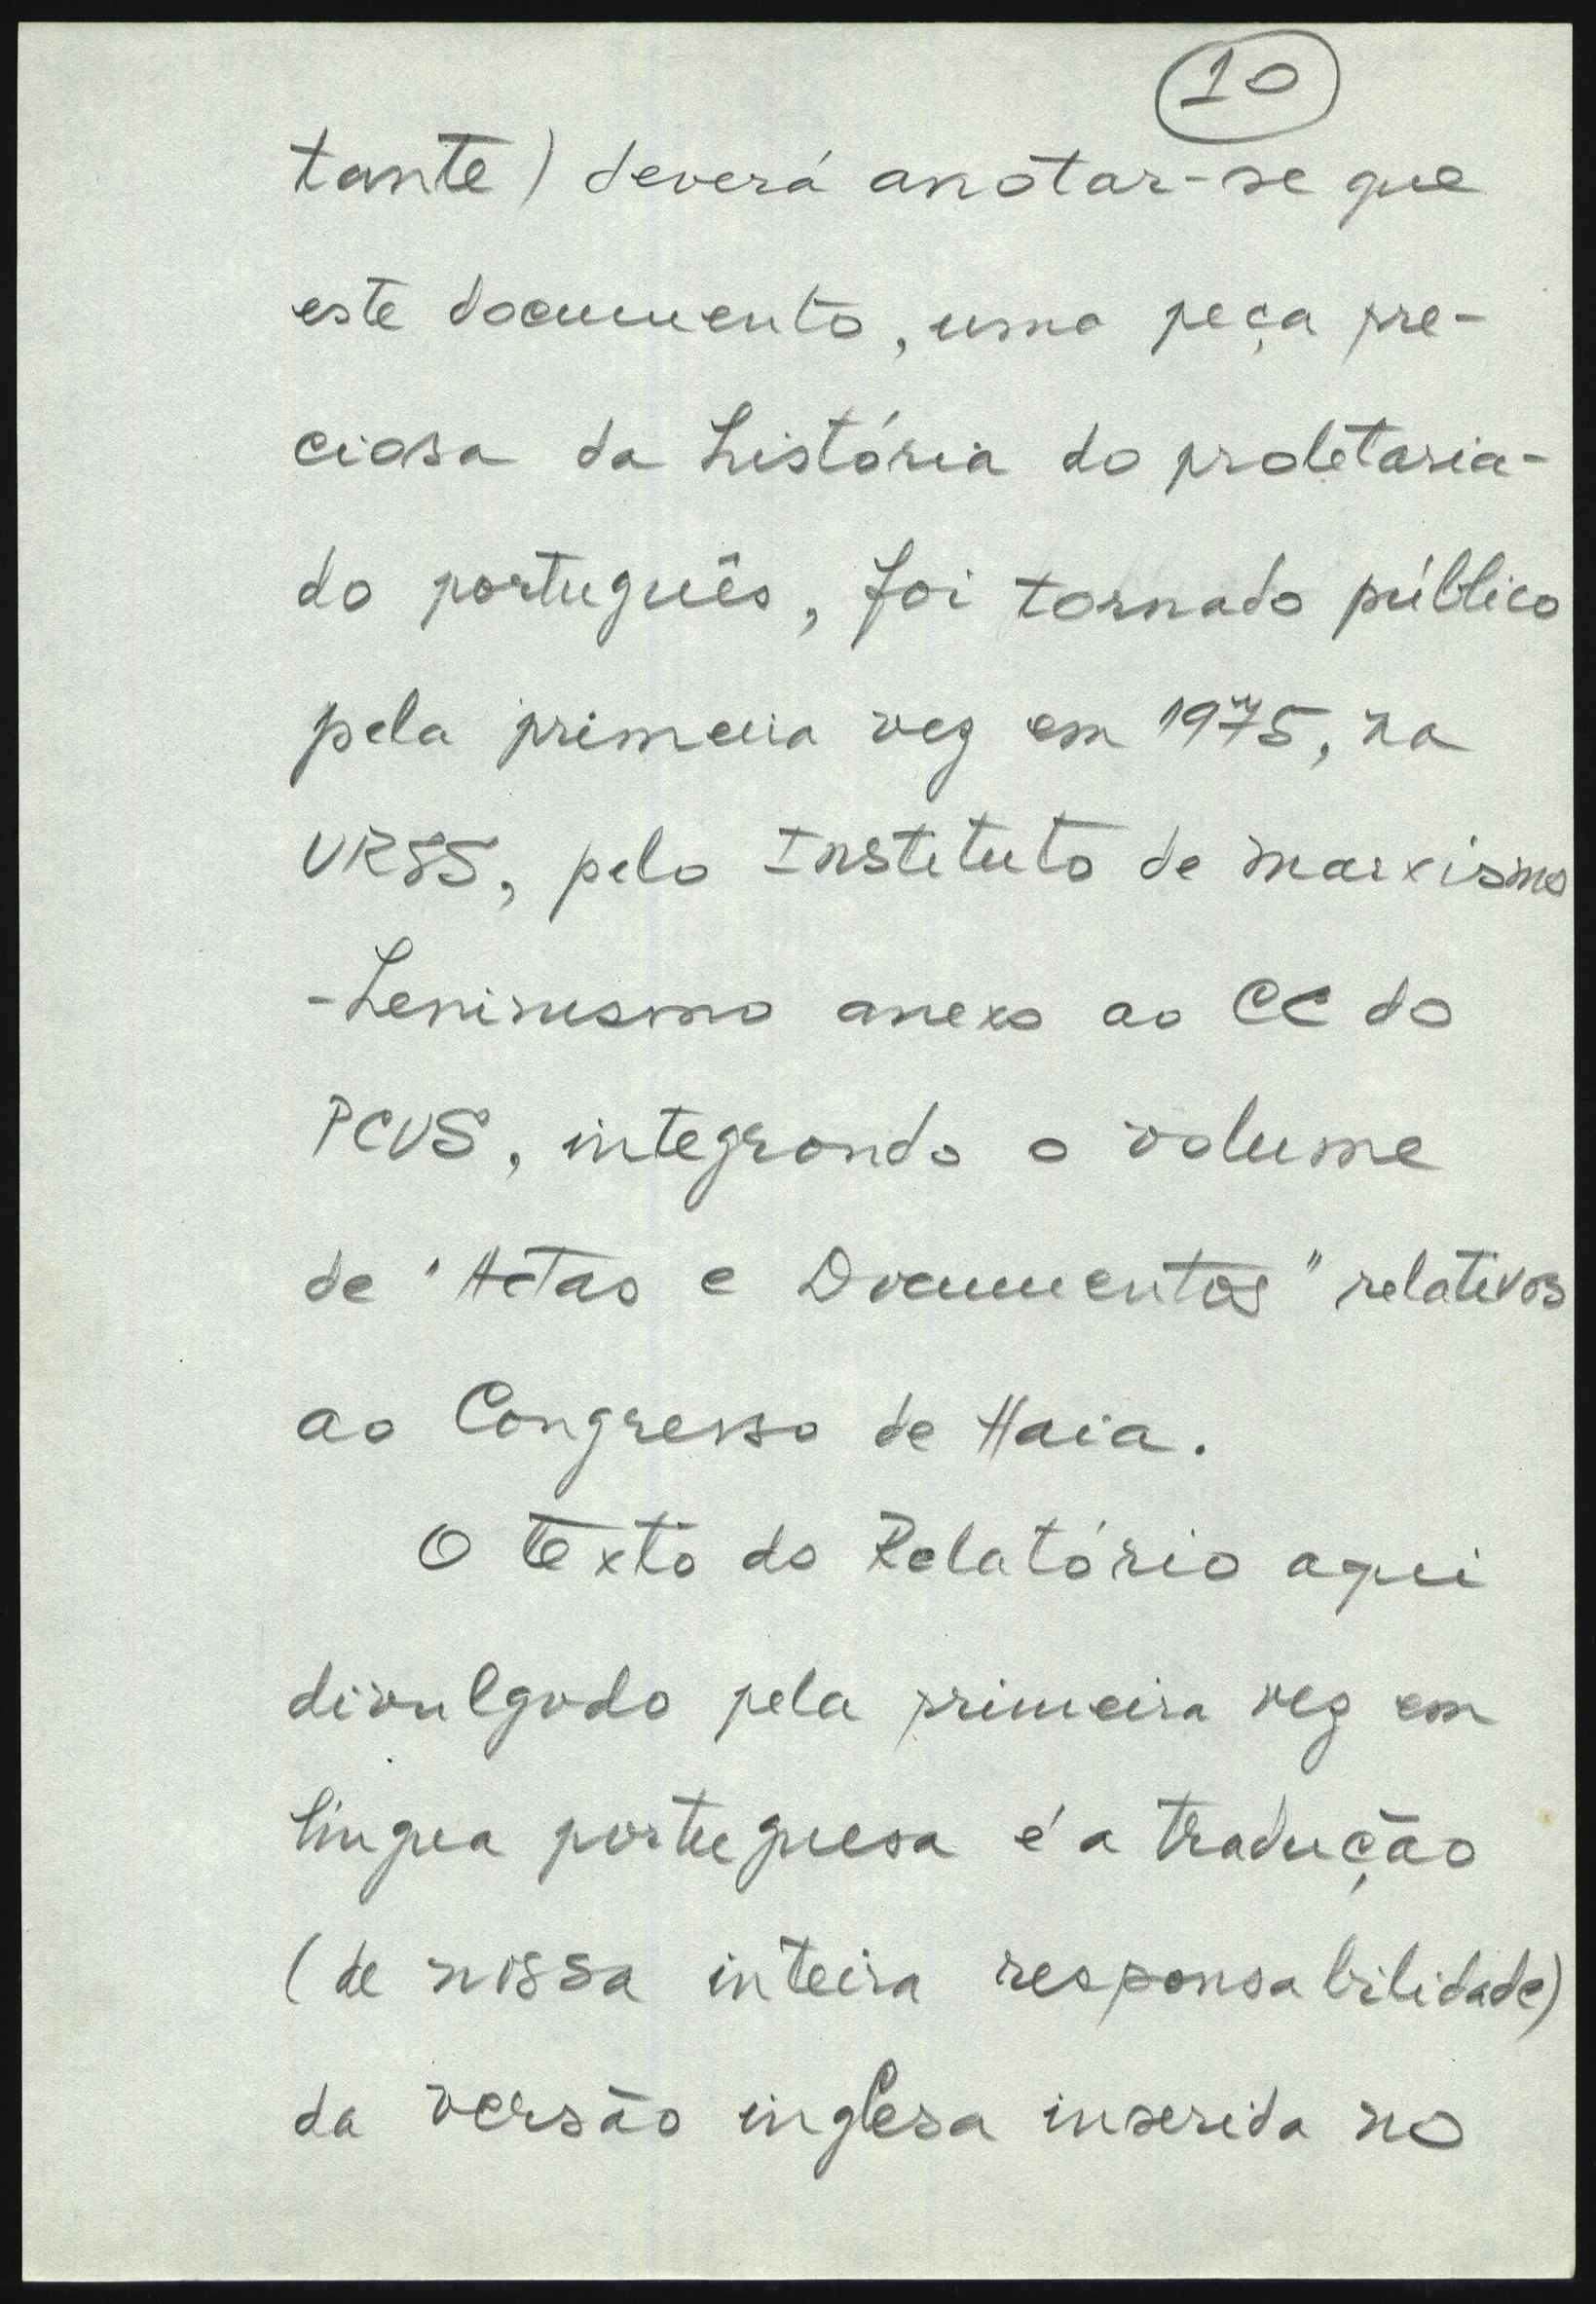 10
tante) deverá anotar-se que
este documento, uma peça pre-
ciosa da história do proletaria-
do português, foi tornado público
pela primeira vez em 1975, na
URSS, pelo Instituto de marxismo
-Leninismo anexo ao CC do
PCUS, integrando o volume
de "Actas e Documentos" relativos
ao Congresso de Haia.
O texto do Relatório aqui
divulgado pela primeira vez em
língua portuguesa é a tradução
(de nossa inteira responsabilidade)
da versão inglesa inserida no